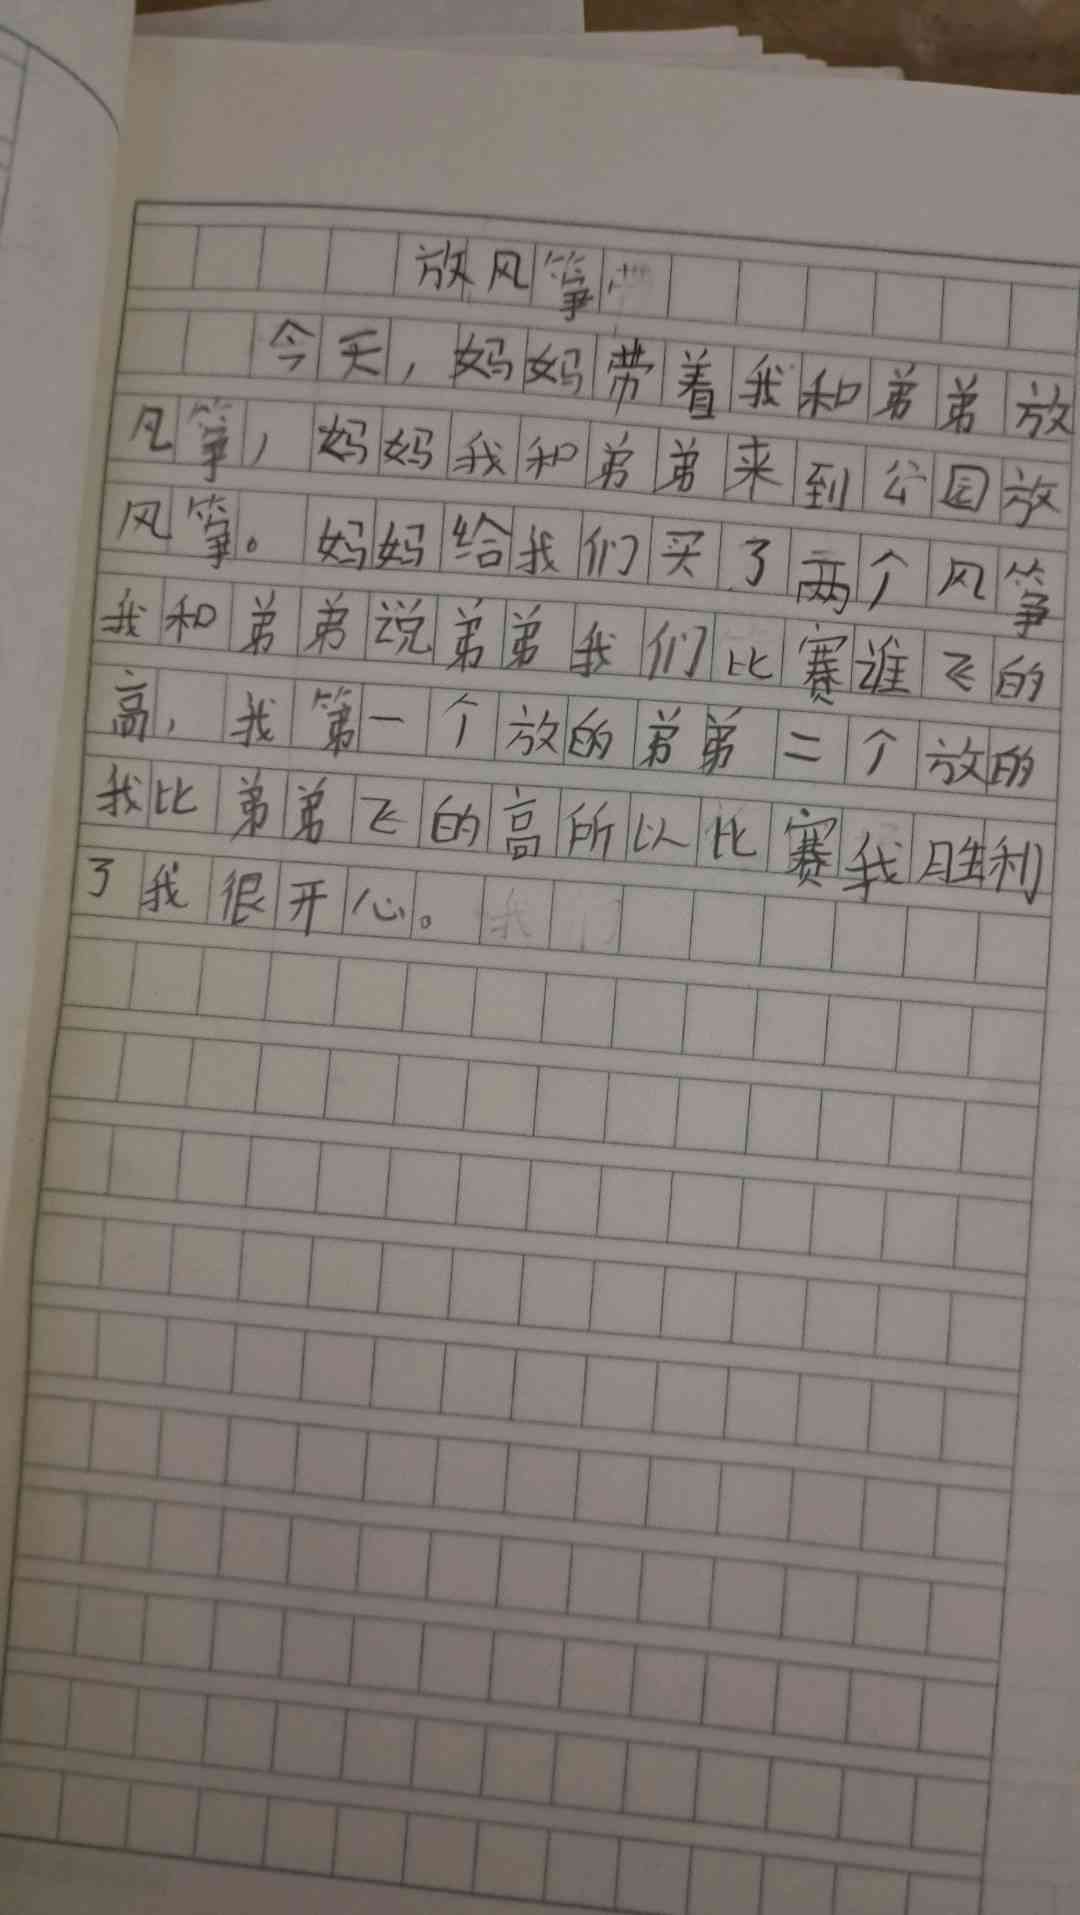 放风筝
今天，妈妈带着我和弟弟放
风筝，妈妈我和弟弟来到公园放
风筝。妈妈给我们买了两个风筝
我和弟弟说弟弟我们比赛谁飞的
高，我第一个放的弟弟二个放的
我比弟弟飞的高所以比赛我胜利
了我很开心。